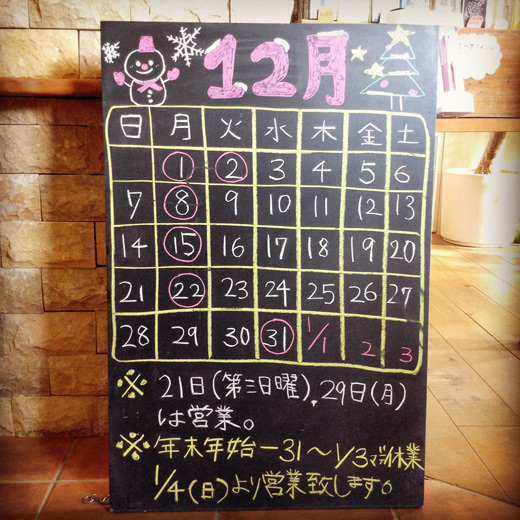 12月
日 月 火 水 木 金 土
1 2 3 4 5 6
7 8 9 10 11 12 13
14 15 16 17 18 19 20
21 22 23 24 25 26 27
28 29 30 31 1/1 2 3
※ 21日(第三日曜), 29日(月)
は営業。
※ 年末年始ー31〜1/3マデ休業
1/4(日)より営業致します。